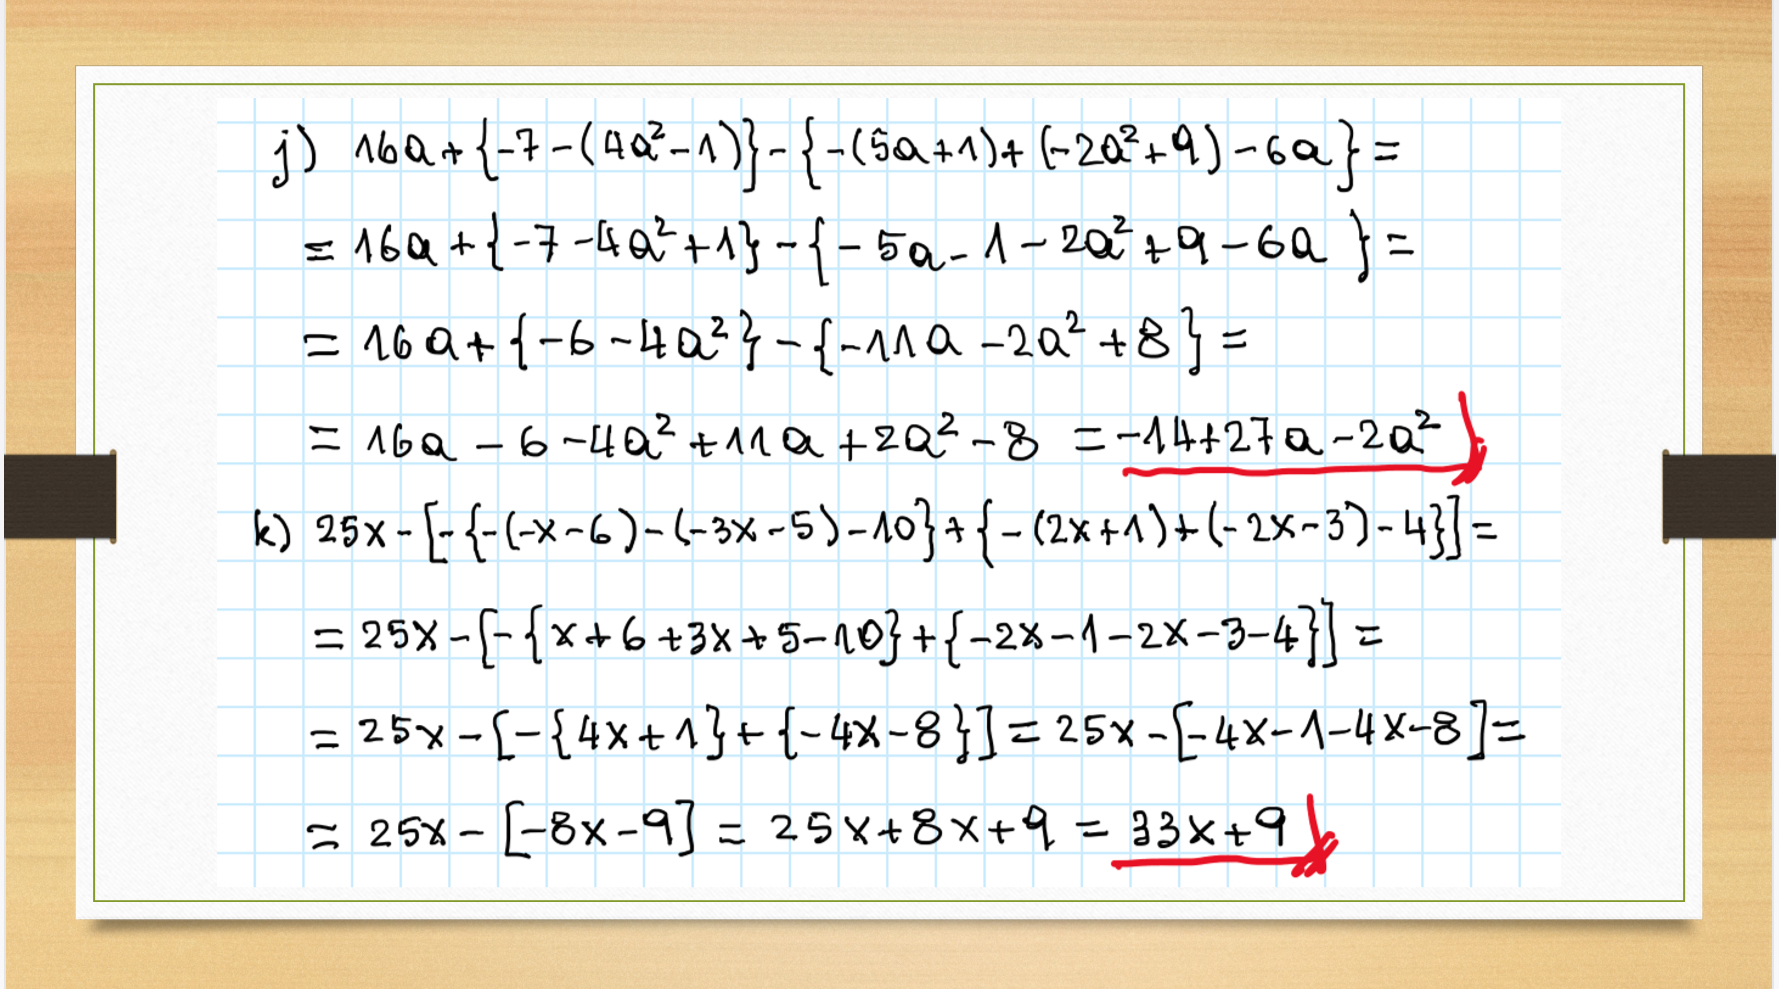 j) 16a+{-7-(4a²-1)}-{-(5a+1)+(-2a²+9)-6a}=
=16a+{-7-4a²+1}-{-5a-1-2a²+9-6a}=
=16a+{-6-4a²}-{-11a-2a²+8}=
=16a-6-4a²+11a+2a²-8=-14+27a-2a²
k) 25x-[-{-(-x-6)-(-3x-5)-10}+{-(2x+1)+(-2x-3)-4}]=
=25x-[-{x+6+3x+5-10}+{-2x-1-2x-3-4}]=
=25x-[-{4x+1}+{-4x-8}]=25x-[-4x-1-4x-8]=
=25x-[-8x-9]=25x+8x+9=33x+9